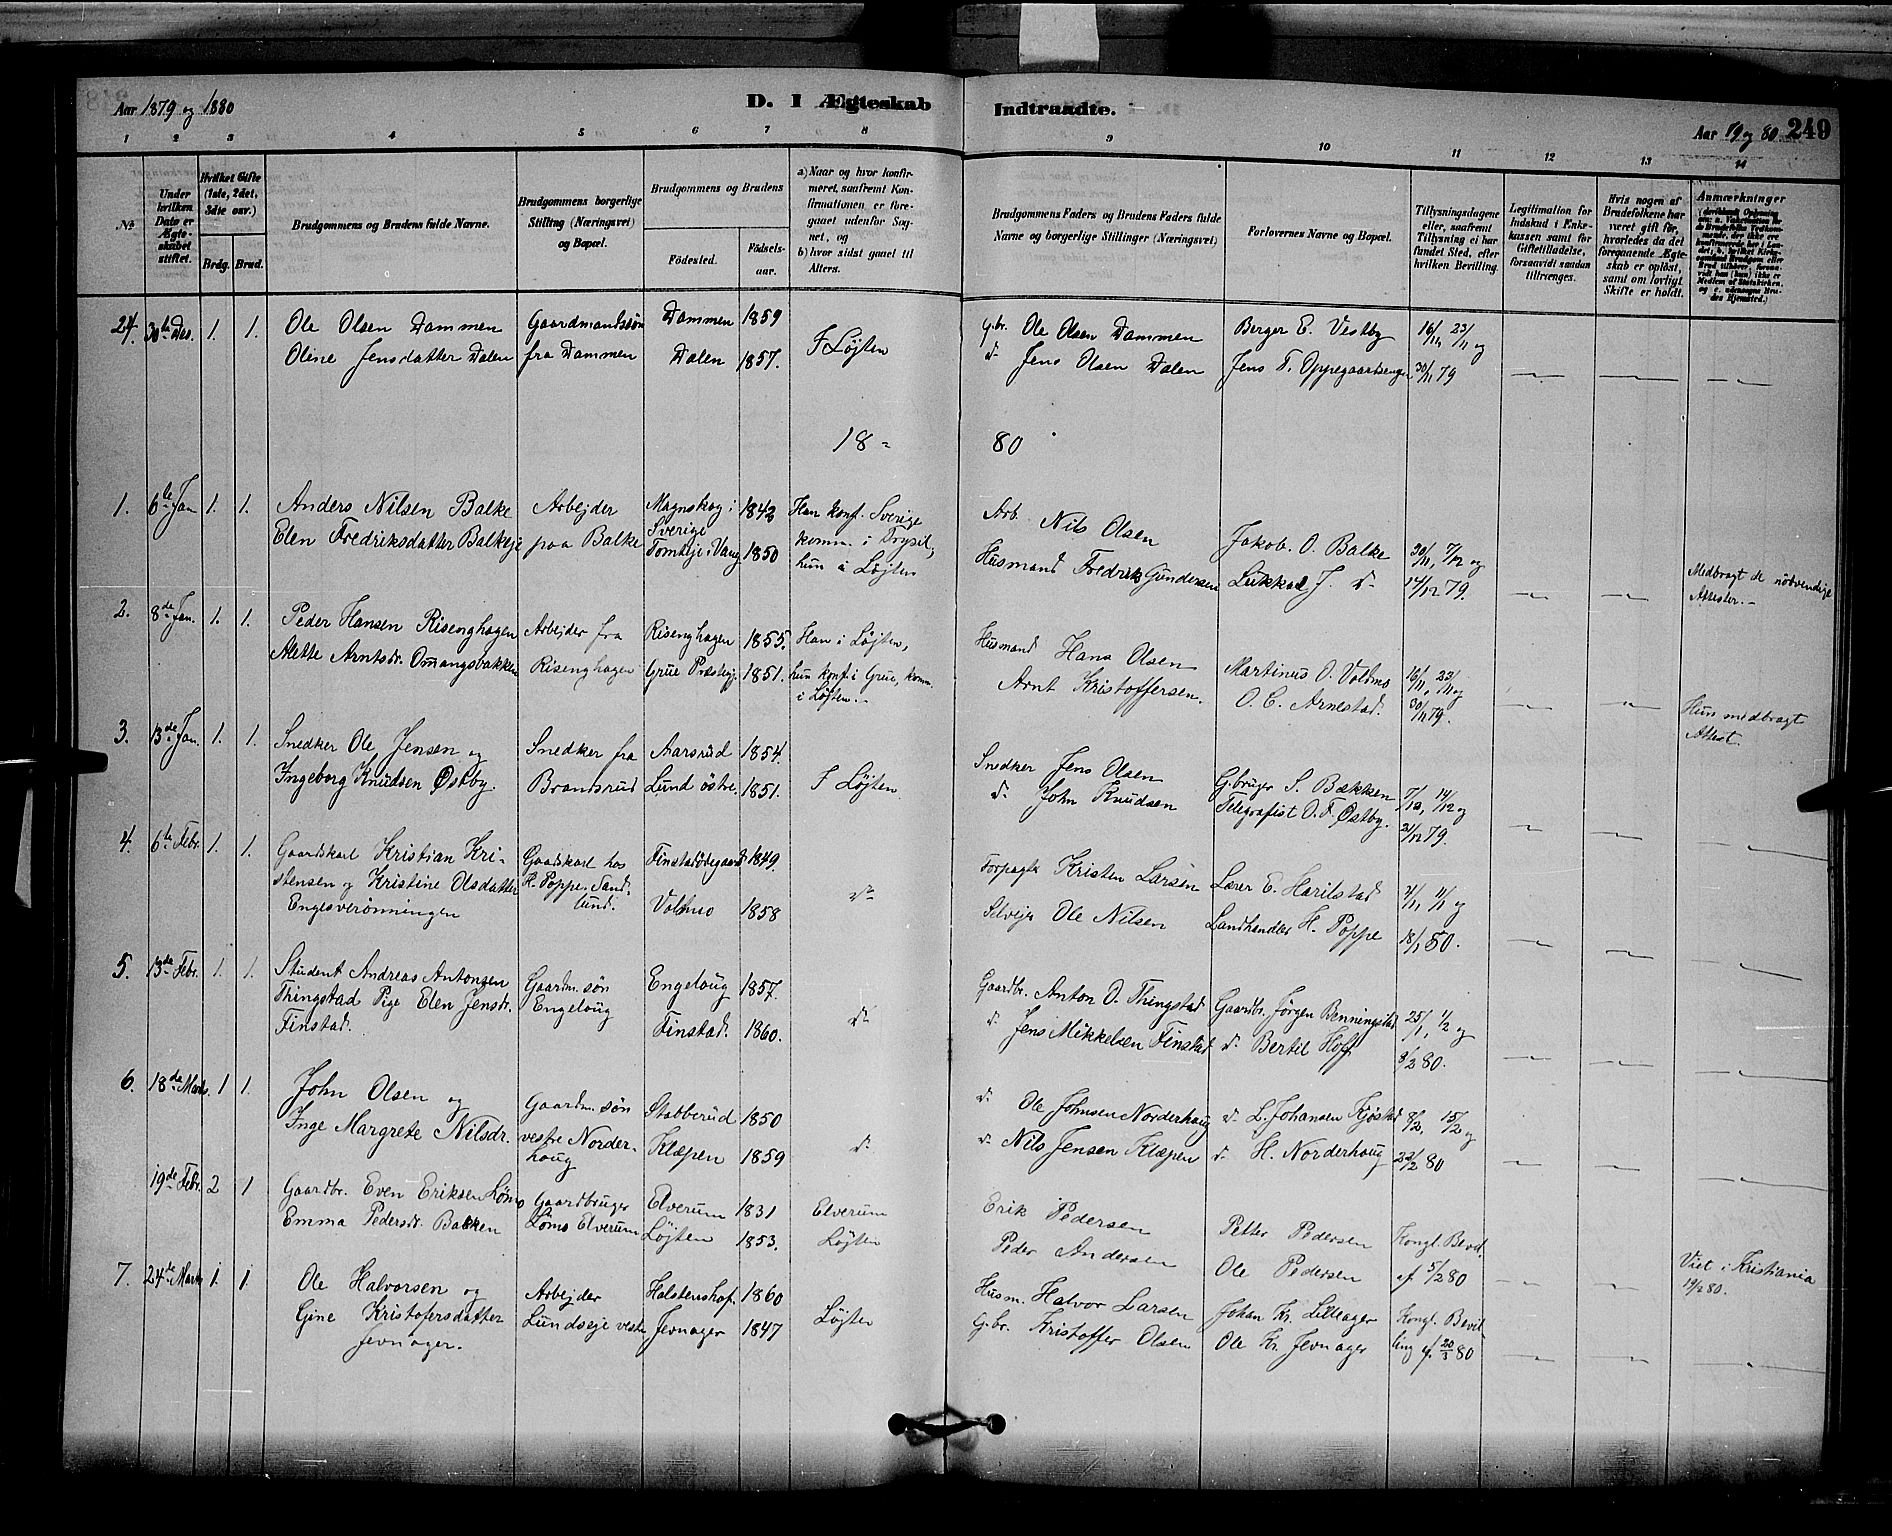 Aar 1879 og 1880
D. I Ægteskab
Indtraadte.
Aar 79 og 80
249
1 2 3 4 5 6 7 8 9 10 11 12 13 14
№
Under hvilken Dato er Ægteskabet stiftet.
Hvilket Gifte (1ste, 2det, 3dte osv.)
Brdg. Brud.
Brudgommens og Brudens fulde Navne.
Brudgommens borgerlige Stilling (Næringsvei) og Bopæl.
Brudgommens og Brudens
Födested.
Födselsaar.
a) Naar og hvor konfirmeret, saafremt Konfirmationen er foregaaet udenfor Sognet, og
b) hvor sidst gaaet til Alters.
Brudgommens Faders og Brudens Faders fulde Navne og borgerlige Stillinger (Næringsvei)
Forlovernes Navne og Bopæl.
Tillysningsdagene eller, saafremt Tillysning ei har fundet Sted, efter hvilken Bevilling.
Legitimation for Indskud i Enkekassen samt for Giftetilladelse, forsaavidt saadan tiltrænges.
Hvis nogen af Brudefolkene har været gift før, hvorledes da det foregaaende Ægteskab er oplöst, samt om lovligt Skifte er holdt.
Anmærkninger
24. 30te Des. 1. 1. Ole Olsen Dammen Gaardmandssön Dammen 1859
Oline Jensdatter Dalen fra Dammen Dalen 1857. I Løjten
G.br. Ole Olsen Dammen Berger E. Vestby 16/11, 23/11 og
do Jens Olsen Dalen Jens T. Oppegaardsengen 30/11 79
18 - 80
1. 6te Jan 1. 1. Anders Nilsen Balke Arbejder Magnskog i Sverige 1842 Han konf. Sverige
Elen Fredriksdatter Balkeje paa Balke Tomteje i Vang 1850 komm. i Trysil, hun i Løjten
Arb. Nils Olsen Jakob. O. Balke 30/11, 7/12 og
Husmand Fredrik Gundersen J. do 14/12 79. Medbragt de nödvendige Attester.
2. 8de Jan. 1. 1. Peder Hansen Risenghagen Arbejder fra Risenghagen 1855. Han i Løjten,
Alette Arntsdr. Omangsbakken Risenghagen Grue Præstegj. 1851. hun konf. i Grue, komm. i Løjten.
Husmand Hans Olsen Martinus O. Voldmo 16/11, 23/11 og
Arnt Kristoffersen. O. C. Arnestad. 30/11 79. Hun medbragt Attest.
3. 13de Jan. 1. 1. Snedker Ole Jensen og Snedker fra Aarsrud 1854.
Ingeborg Knudsen Østby. Brandsrud Lund östre. 1851. I Løjten
Snedker Jens Olsen G.bruger S. Bækken 7/12, 14/12 og
do John Knudsen Telegrafist O. F. Østby. 21/12 79.
4. 6te Febr. 1. 1. Gaardskarl Kristian Kri- Gaardskarl hos Finstadödegaard 1849.
stensen og Kristine Olsdatter H. Poppe. Sand-
Engesverönningen lund. Volmo 1858 do
Forpagter Kristen Larsen Lærer E. Harilstad 4/1, 11/1 og
Selvejer Ole Nilsen Landhandler H. Poppe 18/1 80.
5. 13de Febr. 1. 1. Student Andreas Antonsen Gaardm. sön Engeloug 1857.
Thingstad Pige Elen Jensdr. Engeloug
Finstad. Finstad. 1860. do
Gaardbr. Anton O. Thingstad Gaardbr. Jørgen Benningstad 25/1, 1/2 og
do Jens Mikkelsen Finstad do Bertil Hoff 8/2 80.
6. 18de Marts 1 1. John Olsen og Gaardm. sön Stabberud 1850
Inge Margrete Nilsdr. vestre Norder-
houg Klæpen 1859 do
do Ole Johnsen Norderhoug do L. Johansen Kjöstad 8/2, 15/2 og
do Nils Jensen Klæpen do H. Norderhoug 22/2 80
19de Febr. 2 1 Gaardbr. Even Eriksen Lømo Gaardbruger Elverum 1831 Elverum
Emma Pedersdr. Bakken Lømo Elverum Løjten 1853. Løjten
Erik Pedersen Petter Pedersen Kongl. Bevil.
Peder Andersen Ole Pedersen af 5/2 80 Viet i Kristiania 19/2 80.
7. 24de Marts 1. 1 Ole Halvorsen og Arbejder Holstenshof. 1860
Gine Kristofersdatter Lundseje vestre Jevnager 1847 Løjten
Jevnager.
Husm. Halvor Larsen Johan Kr. Lilleager Kongl. Bevil-
G.br. Kristoffer Olsen Ole Kr. Jevnager ling af 20/3 80